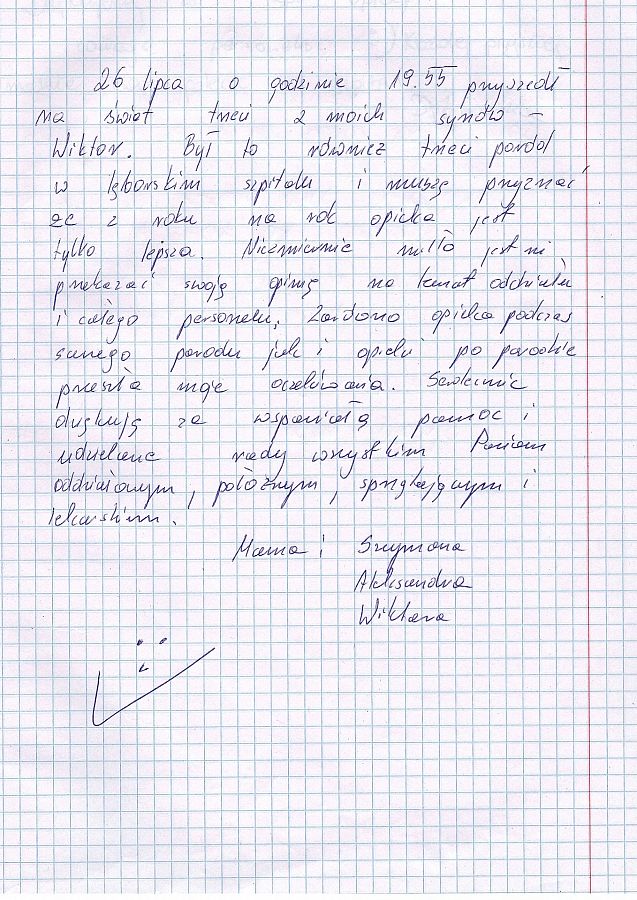 26 lipca o godzinie 19.55 przyszedł
na świat trzeci z moich synów –
Wiktor. Był to również trzeci poród
w lęborskim szpitalu i muszę przyznać
że z roku na rok opieka jest
tylko lepsza. Niezmiernie miło jest mi
przekazać swoją opinię na temat oddziału
i całego personelu, Zarówno opieka podczas
samego porodu jak i opieki po porodzie
przeszła moje oczekiwania. Serdecznie
dziękuję za wspaniałą pomoc i
udzielane rady wszystkim Paniom
oddziałowym, położnym, sprzątającym i
lekarskim.
Mama i Szymona
Aleksandra
Wiktora